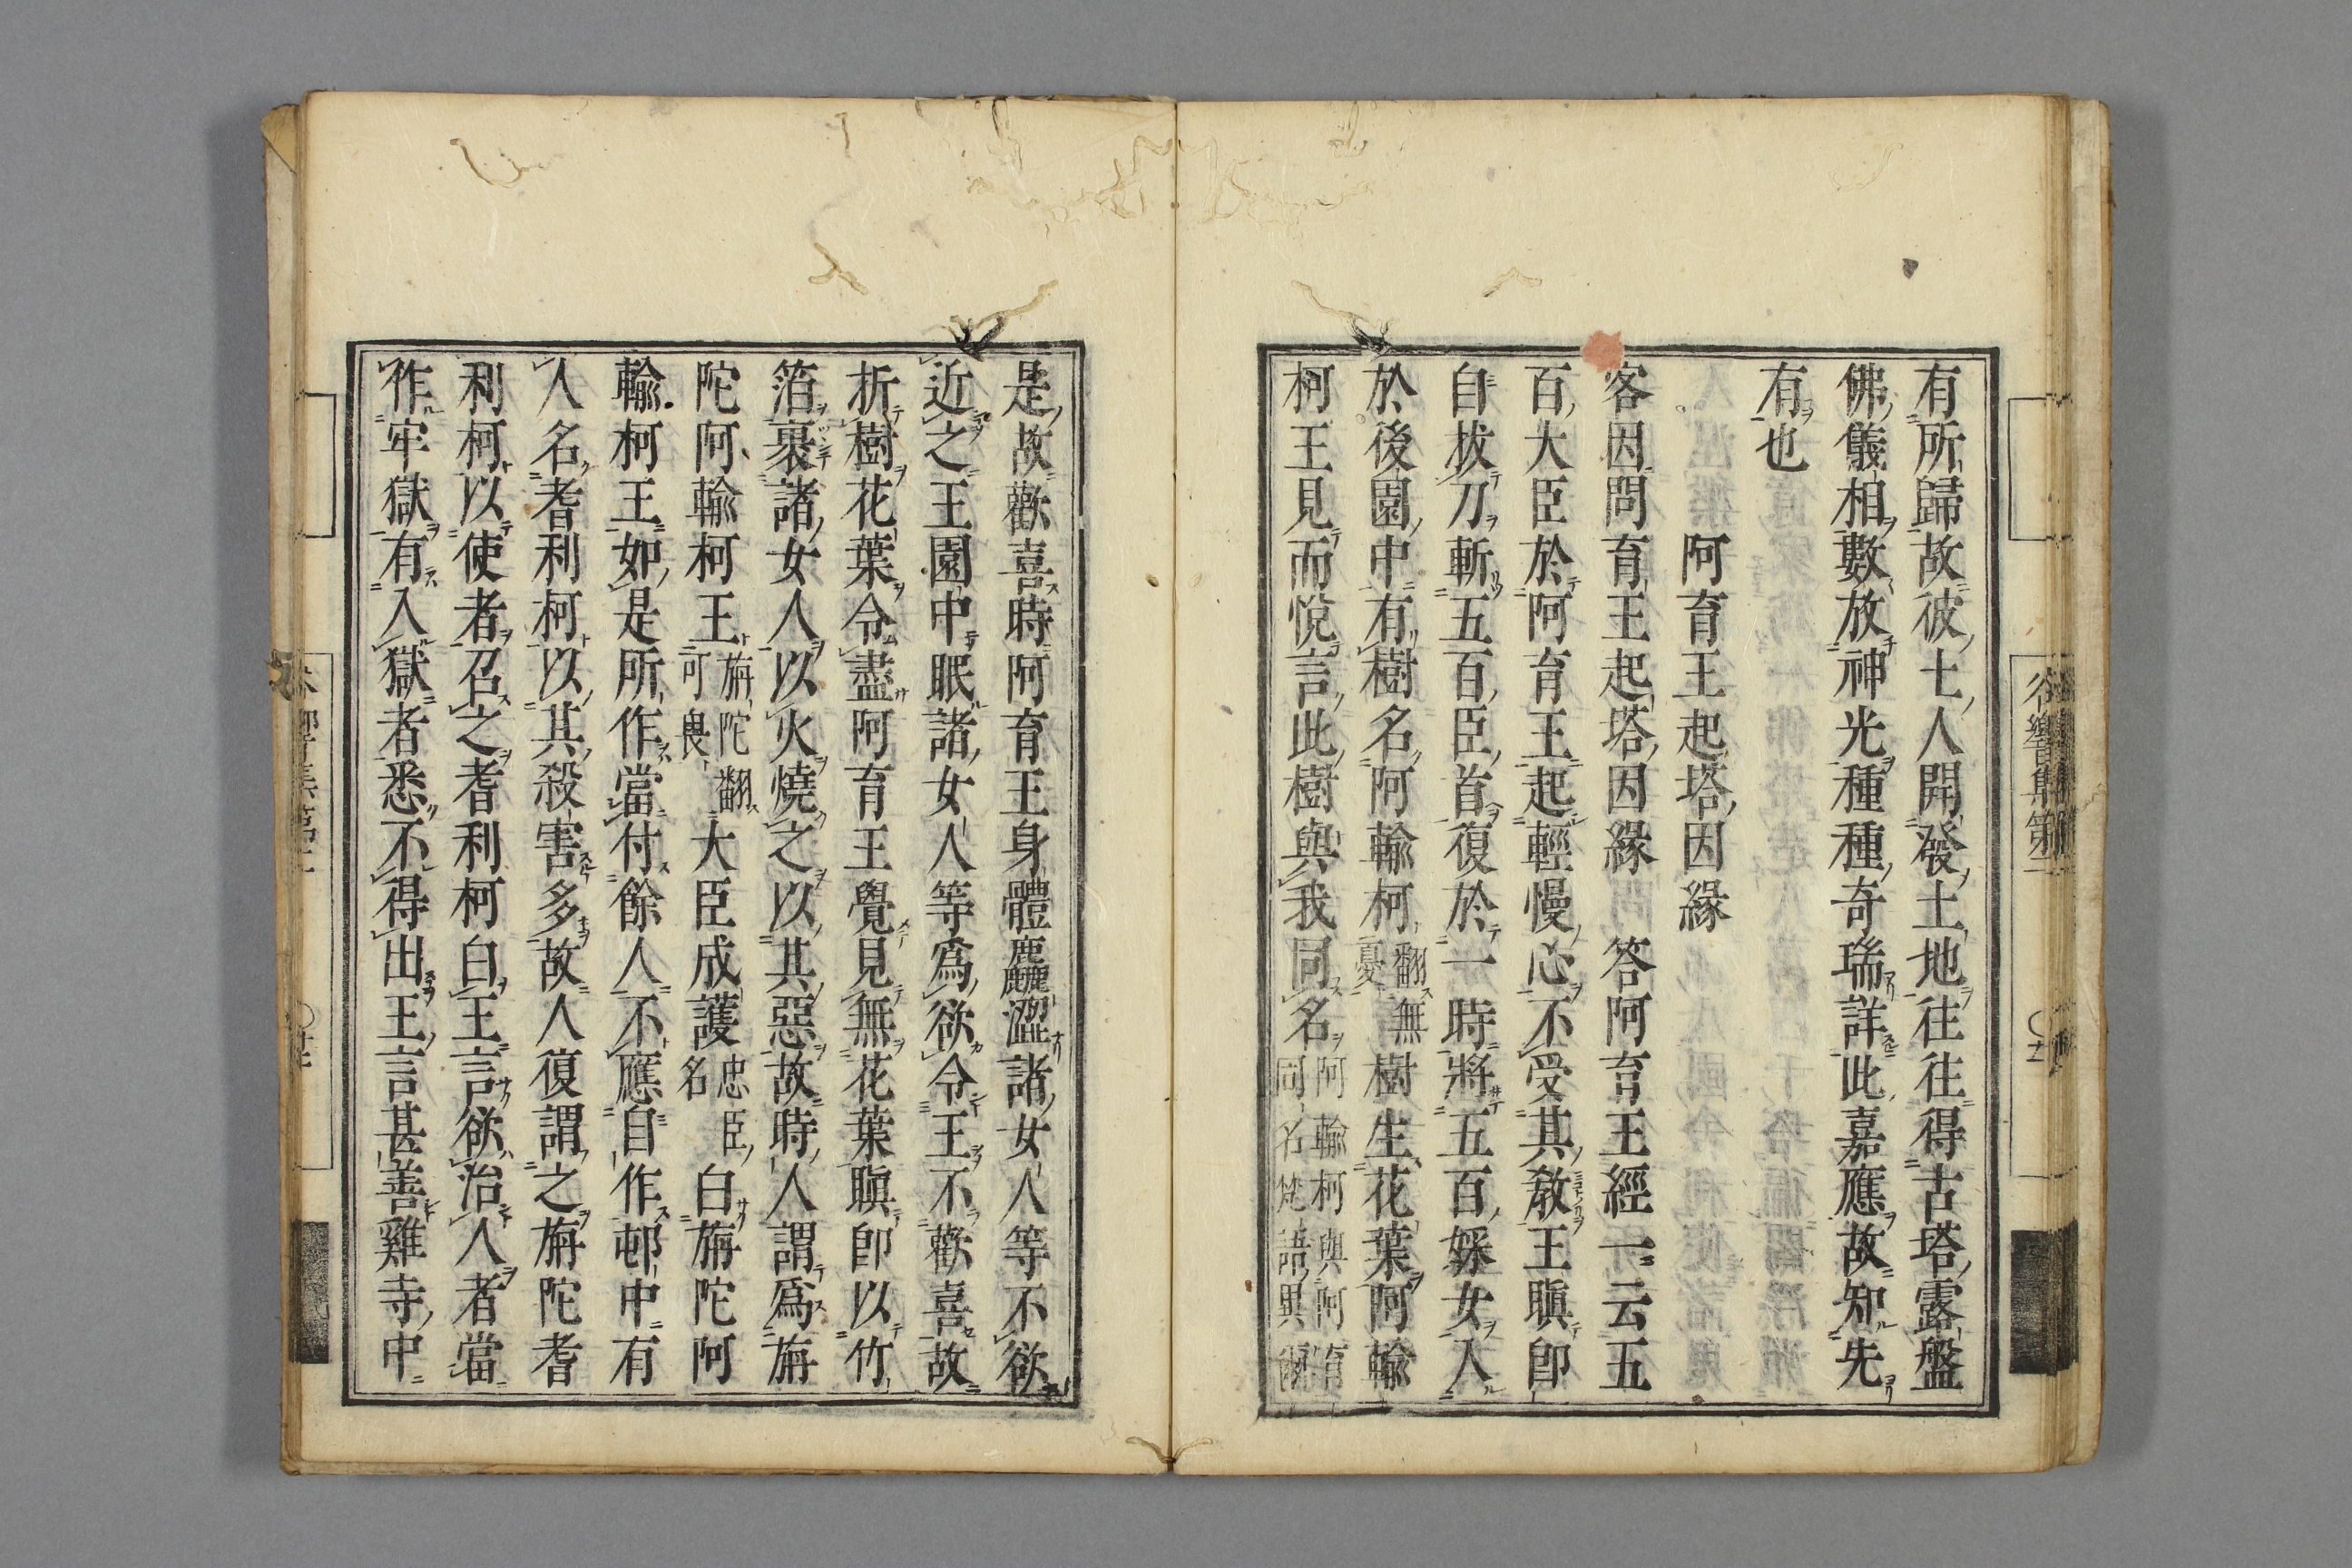 有所歸故彼土人開發土地往往得古塔露盤
佛儀相數放神光種種奇瑞詳此嘉應故知先
有也
阿育王起塔因緣
客因問育王起塔因緣 答阿育王經一云五
百大臣於阿育王起輕慢心不受其敎王瞋卽
自拔刀斬五百臣首復於一時將五百婇女入
於後園中有樹名阿輸柯翻無憂樹生花葉阿輸
柯王見而悅言此樹與我同名阿輸柯與阿育同名梵語異
是故歡喜時阿育王身體麤澀諸女人等不欲
近之王園中眠諸女人等爲欲令王不歡喜故
折樹花葉令盡阿育王覺見無花葉瞋卽以竹
箔裹諸女人以火燒之以其惡故時人謂爲旃
陀阿輸柯王旃陀翻可畏大臣成護忠臣名白旃陀阿
輸柯王如是所作當付餘人不應自作邨中有
人名耆利柯以其殺害多故人復謂之旃陀耆
利柯以使者召之耆利柯白王言欲治人者當
作牢獄有入獄者悉不得出王言甚善雞寺中
谷響集第